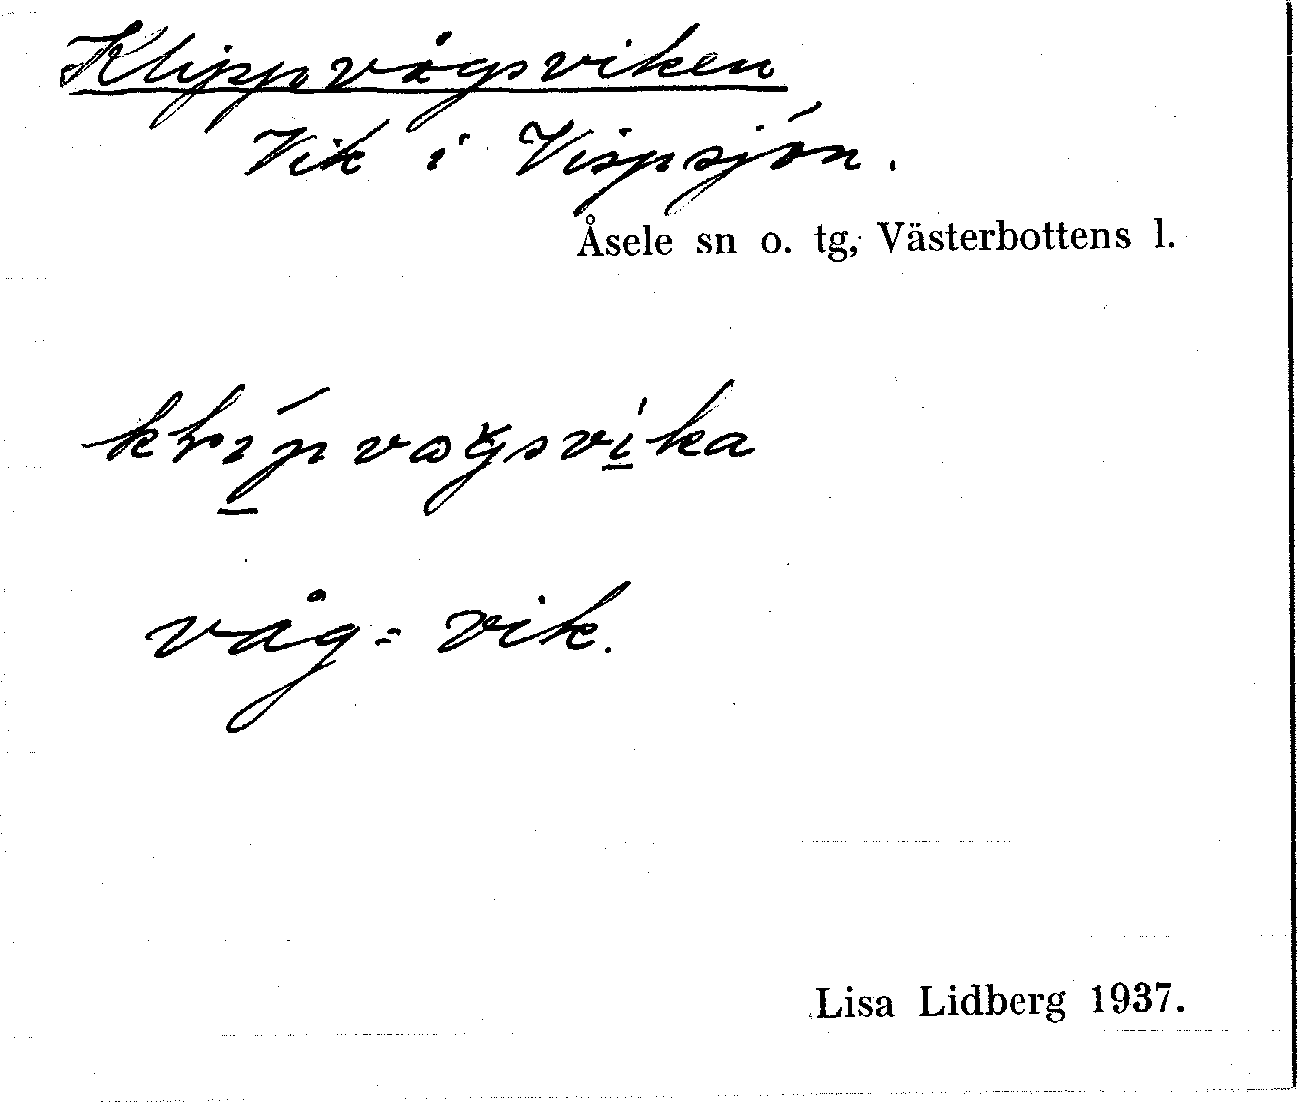 Klippvågsviken
Vik i Vispsjön.
Åsele sn o. tg, Västerbottens l.
våg = vik.
Lisa Lidberg 1937.